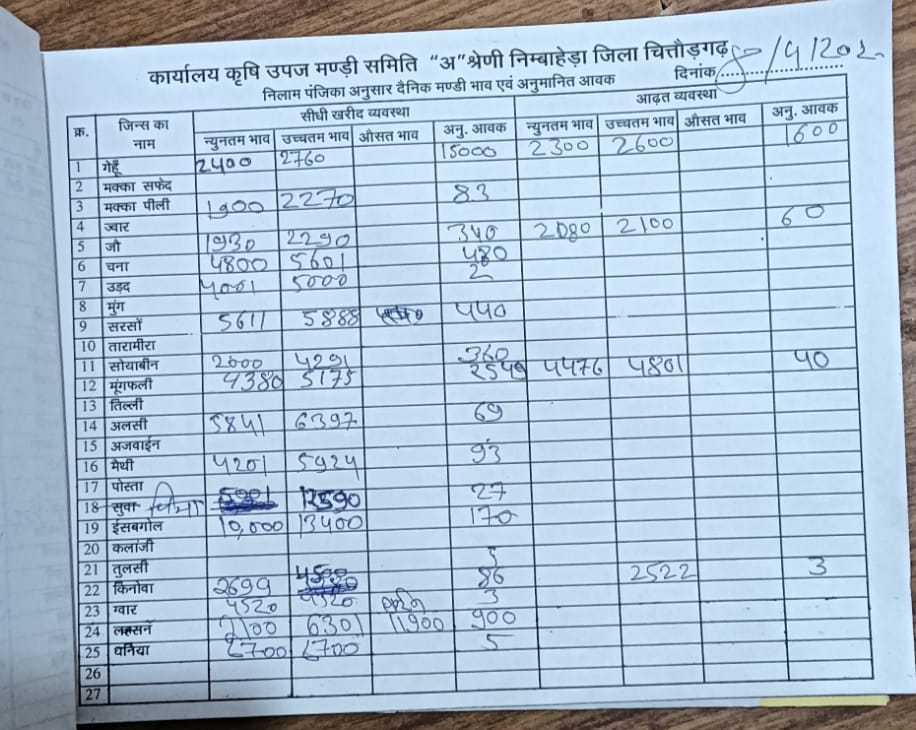 कार्यालय कृषि उपज मण्डी समिति "अ" श्रेणी निम्बाहेड़ा जिला चित्तौड़गढ़
निलाम पंजिका अनुसार दैनिक मण्डी भाव एवं अनुमानित आवक दिनांक
क्र. जिन्स का नाम सीधी खरीद व्यवस्था आढ़त व्यवस्था
न्युनतम भाव उच्चतम भाव औसत भाव अनु. आवक न्युनतम भाव उच्चतम भाव औसत भाव अनु. आवक
1 गेहूँ 2400 2760 15000 2300 2600 1600
2 मक्का सफेद
3 मक्का पीली 1900 2270 83
4 ज्वार
5 जौ 1930 2290 340 2080 2100 60
6 चना 4800 5601 480
7 उड़द 4001 5000 2
8 मुंग
9 सरसों 5611 5888 440
10 तारामीरा
11 सोयाबीन 2000 4291 360
12 मूंगफली 4380 5175 2549 4476 4801 40
13 तिल्ली
14 अलसी 5841 6397 69
15 अजवाईन
16 मैथी 4201 5924 93
17 पोस्ता
18 सुवा 12590 27
19 ईसबगोल 10,000 13400 170
20 कलांजी
21 तुलसी 5
22 किनोवा 2699 86 2522 3
23 ग्वार 4520 4520 3
24 लहसन 2100 6301 11900 900
25 धनिया 6700 6700 5
26
27